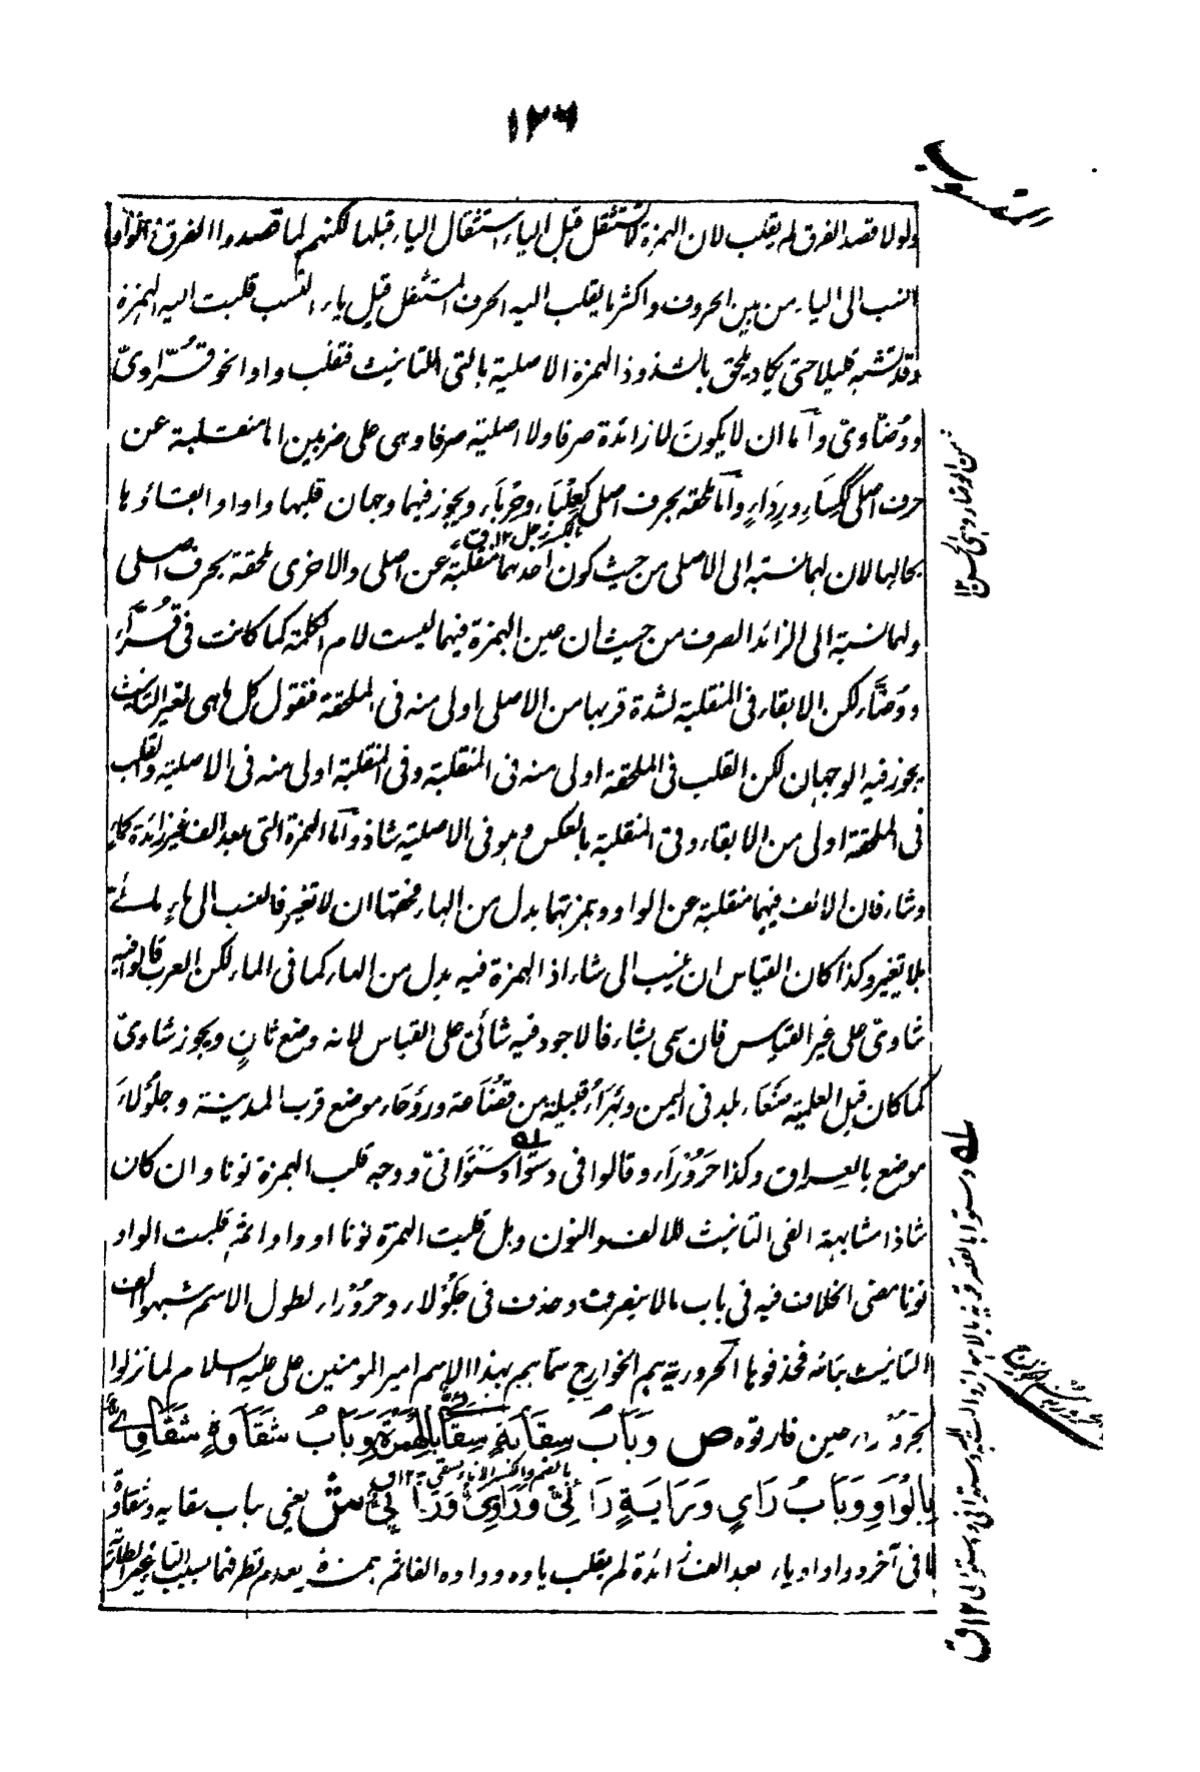 ١٢٦
ولولا قصد الفرق لم يقلب لان الهمزة لا تستثقل قبل الياء استثقال الياء قبلها لكنهم لما قصدوا الفرق فالواو
انسب الى الياء من بين الحروف واكثر ما يقلب اليه الحرف المستثقل قبل ياء النسب قلبت اليه الهمزة
وقد تشبه قليلا حتى يكاد يلحق بالشذوذ الهمزة الاصلية بالتى للتانيث فتقلب واوا نحو قُرّاوىّ
ووُضّاوىّ وآما ان لا يكونَ لا زائدة صرفا ولا اصلية صرفا وهى على ضربين اما منقلبة عن
حرف اصلى ككِسَاءٍ ورِدَاءٍ وآما ملحقة بحرف اصلى كعِلْبَاء وحِرْبَاء ويجوز فيهما وجهان قلبها واوا وابقاؤها
بحالها لان لهما نسبة الى الاصلى من حيث كون احدهما منقلبة عن اصلى والاخرى ملحقة بحرف اصلى
ولهما نسبة الى الزائد الصرف من حيث ان عين الهمزة فيهما ليست لام الكلمة كما كانت فى قُرّاء
ووُضّاء لكن الابقاء فى المنقلبة لشدة قربها من الاصلى اولى منه فى الملحقة فنقول كل ما هى لغير التانيث
يجوز فيه الوجهان لكن القلب فى الملحقة اولى منه فى المنقلبة وفى المنقلبة اولى منه فى الاصلية والقلب
فى الملحقة اولى من الابقاء وفى المنقلبة بالعكس وهو فى الاصلية شاذ وآما الهمزة التى بعد الف غير زائدة كماءٍ
وشاء فان الالف فيهما منقلبة عن الواو وهمزتهما بدل من الهاء فحقها ان لا تغير فالنسب الى ماءٍ مائىّ
بلا تغير وكذا كان القياس ان ينسب الى شاء اذ الهمزة فيه بدل من الهاء كما فى الماء لكن العرب قالوا فيه
شاوىّ على غير القياس فان سمى بشاء فالاجود فيه شائىّ على القياس لانه وضع ثانٍ ويجوز شاوىّ
كما كان قبل العلمية صَنْعَاء بلد فى اليمن وبَهْرَاءُ قبيلة من قُضَاعة ورَوْحَاء موضع قرب المدينة وجلُولاءَ
موضع بالعراق وكذا حَرَوْرَاء وقالوا فى دستواء دستوانىّ ووجه قلب الهمزة نونا وان كان
شاذا مشابهة الفى التانيث للالف والنون وهل قلبت الهمزة نونا او واوا ثم قلبت الواو
نونا مضى الخلاف فيه فى باب ما لا ينصرف وحذف فى جَلُوْلاء وحرورْاء لطول الاسم شبهوا الف
التانيث بتائه فحذفوها الحرورية هم الخوارج سماهم بهذا الاسم امير المومنين على عليه السلام لما نزلوا
بحَرُوْرَاء حين فارقوه ص وَبَابُ سِقَايَةٍ سِقَائِىٌّ بِالْهَمْزَةِ وَبَابُ شَقَاوَةٍ شَقَاوِىٌّ
بِالْوَاوِ وَبَابُ رَايٍ وَرَايَةٍ رَائِىٌّ وَرَاوِىٌّ وَرَايِىٌّ ش يعنى بباب سقاية وشقاوة
ما فى آخره واو او ياء بعد الف زائدة لم يقلب ياوه وواوه الفا ثم همزة لعدم تطرفهما بسبب التاء غير الطارئة
دستوا بالقصر قرية بالاهواز والنسبة دستوانى ودستوائى ١٢ ق